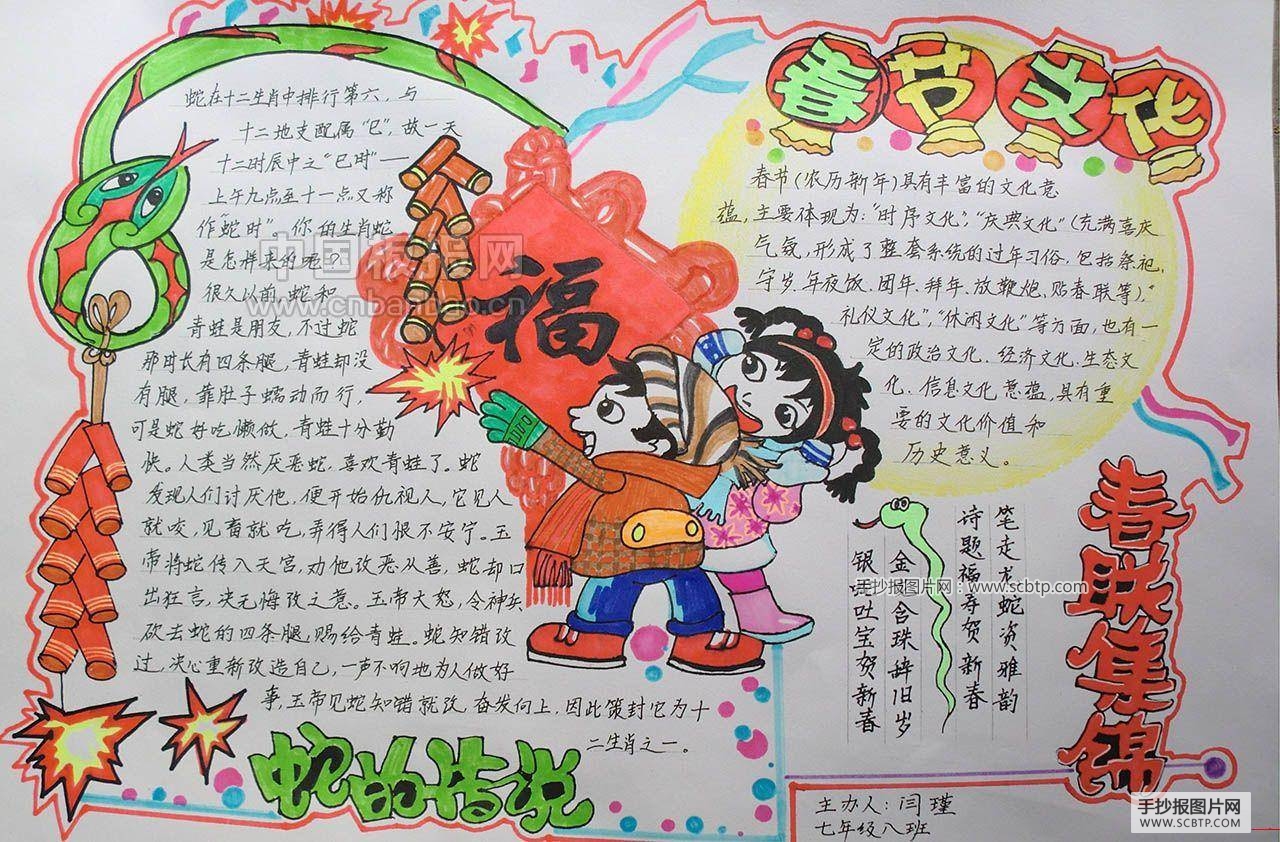 春节文化
蛇在十二生肖中排行第六，与
十二地支配属“巳”，故一天
十二时辰中之“巳时”——
上午九点至十一点又称
作“蛇时”。你的生肖蛇
是怎样来的呢？
很久以前，蛇和
青蛙是朋友，不过蛇
那时长有四条腿，青蛙却没
有腿，靠肚子蠕动而行，
可是蛇好吃懒做，青蛙十分勤
快。人类当然厌恶蛇，喜欢青蛙了。蛇
发现人们讨厌他，便开始仇视人，它见人
就咬，见畜就吃，弄得人们恨不安宁。玉
帝将蛇传入天宫，劝他改恶从善，蛇却口
出狂言，决无悔改之意。玉帝大怒，令神兵
砍去蛇的四条腿，赐给青蛙。蛇知错改
过，决心重新改造自己，一声不响地为人做好
事，玉帝见蛇知错就改，奋发向上，因此策封它为十
二生肖之一。
蛇的传说
福
春节（农历新年）具有丰富的文化意
蕴，主要体现为：“时序文化”，“庆典文化”（充满喜庆
气氛，形成了整套系统的过年习俗，包括祭祀、
守岁、年夜饭、团年、拜年、放鞭炮、贴春联等）,“
礼仪文化”，“休闲文化”等方面，也有一
定的政治文化、经济文化、生态文
化、信息文化意蕴，具有重
要的文化价值和
历史意义。
春联集锦
笔走龙蛇资雅韵
诗题福寿贺新春
金含珠辞旧岁
银吐宝贺新春
主办人：闫瑾
七年级八班
中国板报网
www.cnbanbao.cn
手抄报图片网：www.scbtp.com
手抄报图片网
WWW.SCBTP.COM